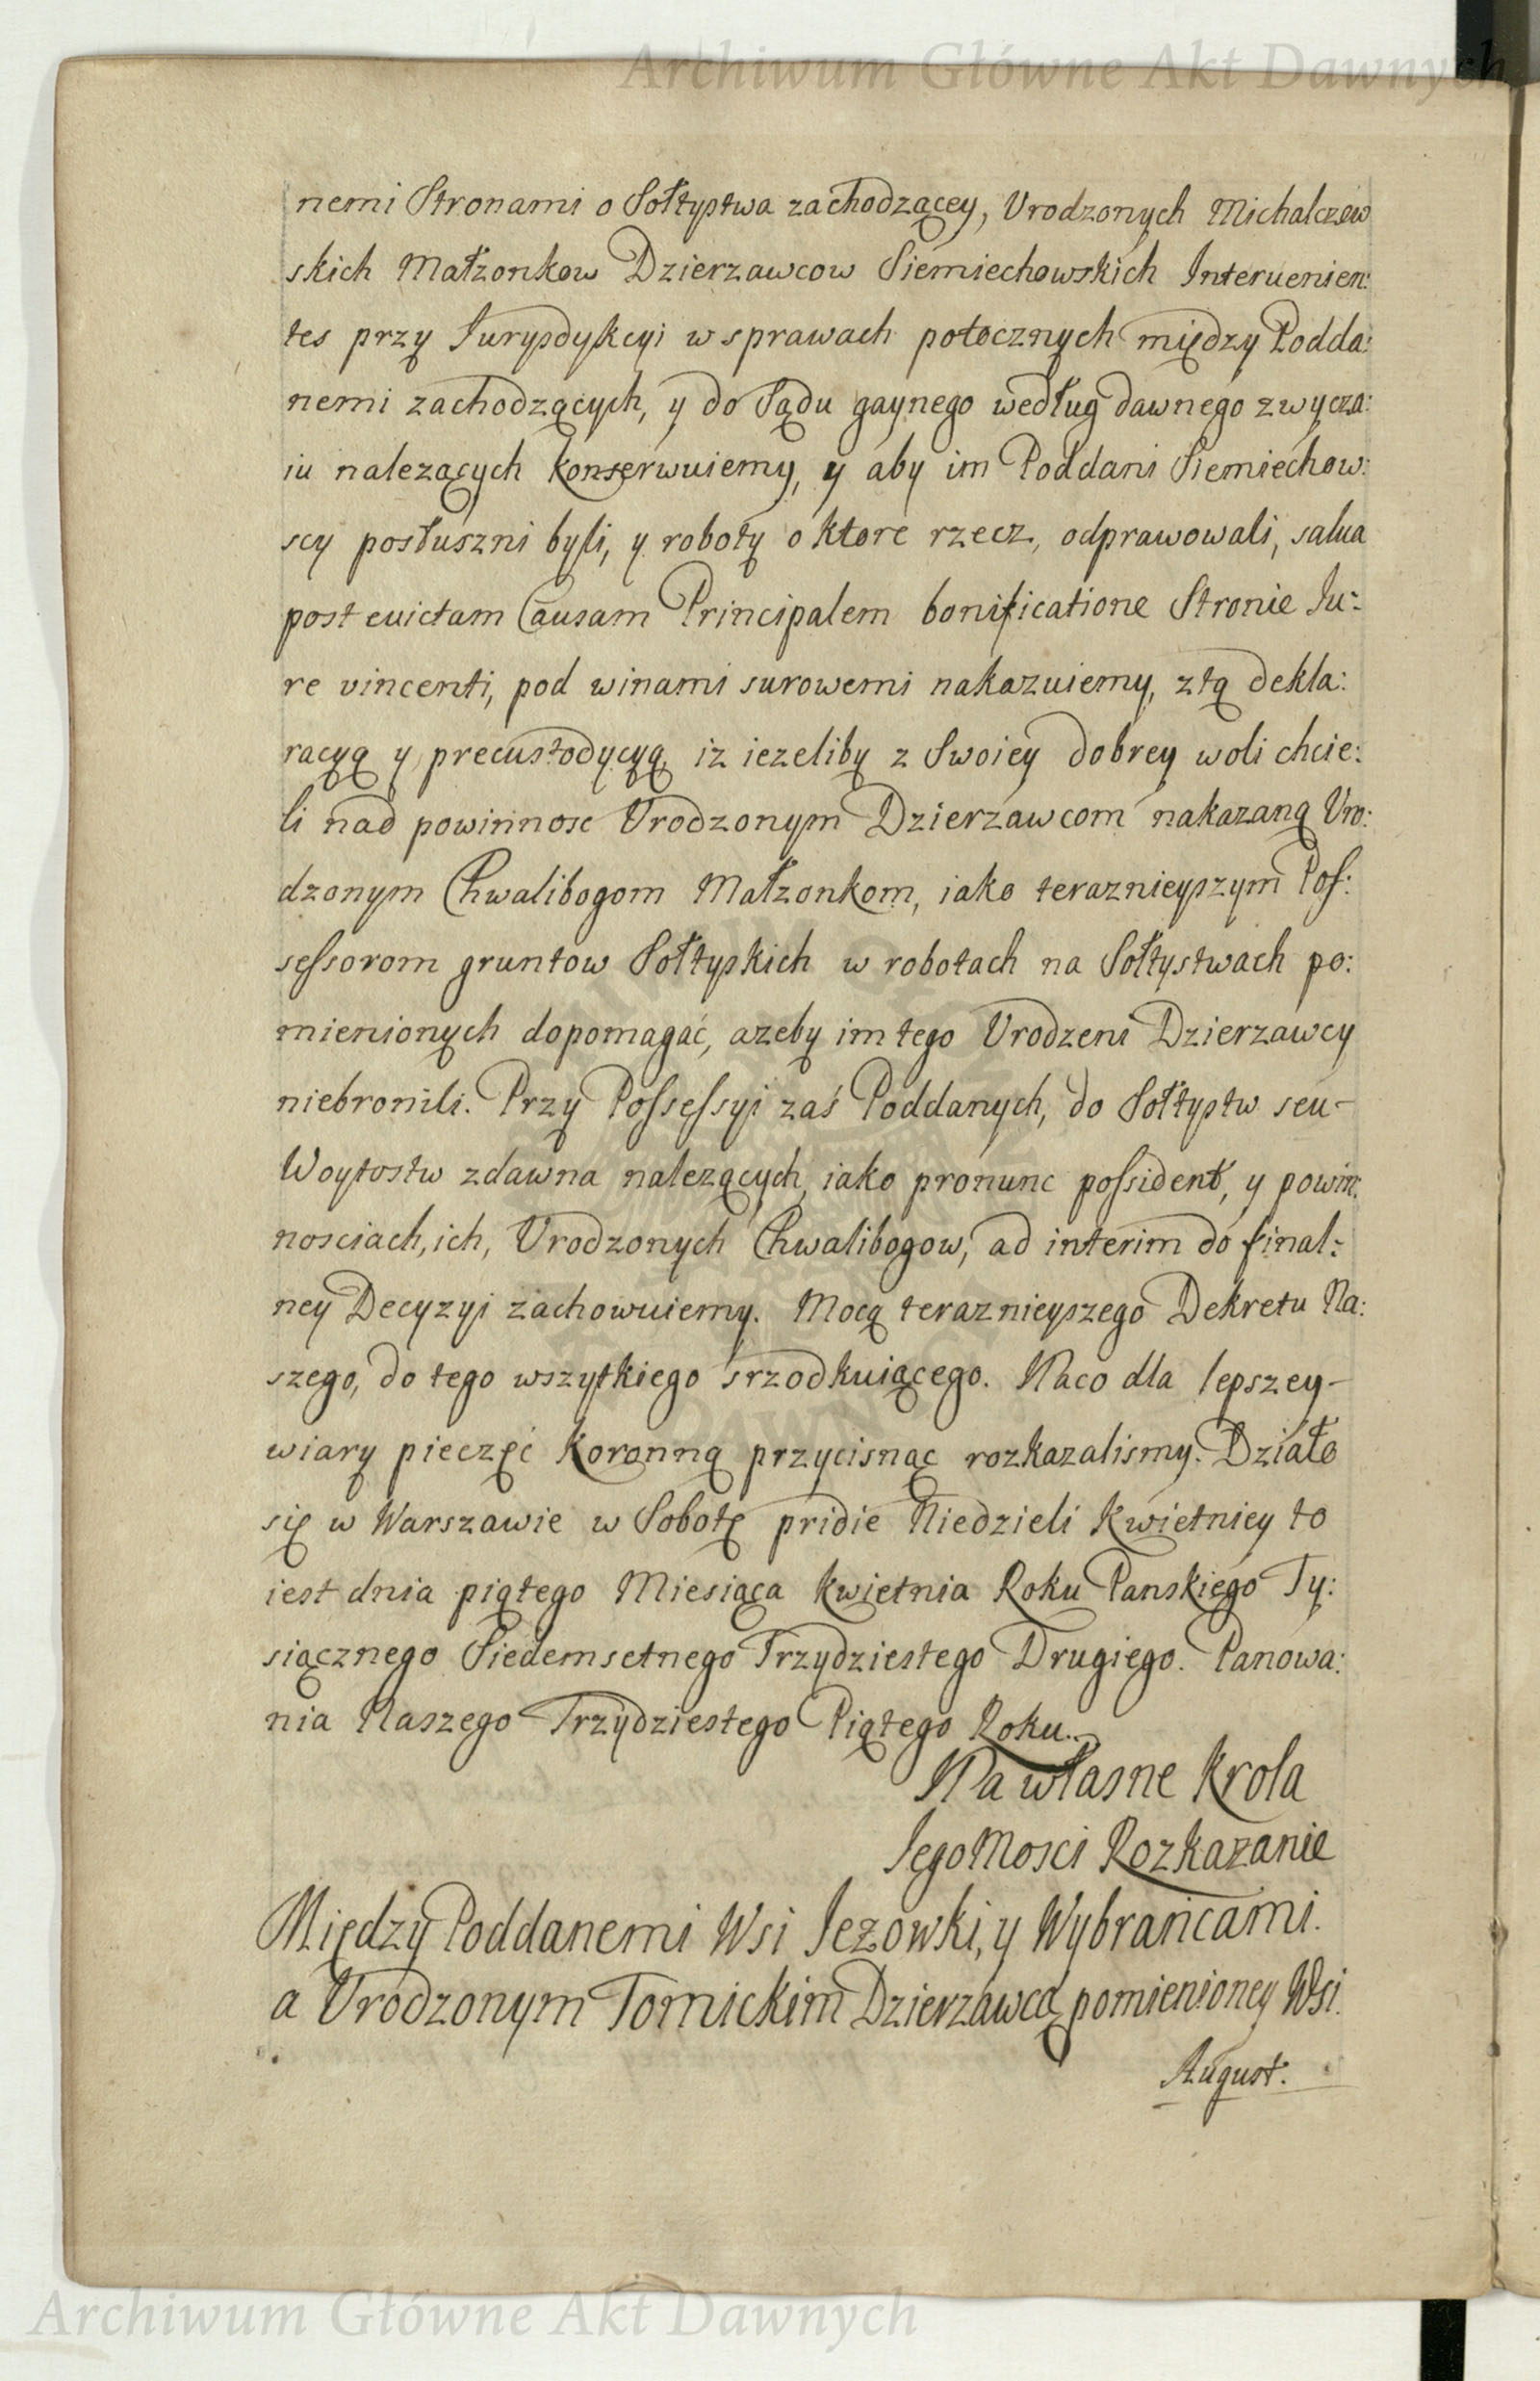 Archiwum Główne Akt Dawnych
nemi Stronami o Sołtystwa zachodzącey, Urodzonych Michalczew
skich Małzonkow Dzierzawcow Siemiechowskich Interuenien:
tes przy Jurysdykcyi w sprawach potocznych między Podda:
nemi zachodzących, y do Sądu gaynego według dawnego zwycza:
iu nalezących konserwuiemy, y aby im Poddani Siemiechow:
scy posłuszni byli, y roboty o ktore rzecz, odprawowali, salua
post euictam Causam Principalem bonificatione Stronie Ju:
re vincenti, pod winami surowemi nakazuiemy, ztą dekla:
racyą y precustodycyą, iz iezeliby z Swoiey dobrey woli chcie:
li nad powinnosc Urodzonym Dzierzawcom nakazaną Uro:
dzonym Chwalibogom Małzonkom, iako teraznieyszym Pos:
sessorom gruntow Sołtyskich w robotach na Sołtystwach po:
mienionych dopomagać, azeby im tego Urodzeni Dzierzawcy
niebronili. Przy Possessyi zaś Poddanych, do Sołtystw seu-
Woytostw zdawna nalezących, iako pronunc possident, y powin:
nosciach, ich, Urodzonych Chwalibogow, ad interim do final:
ney Decyzyi zachowuiemy. Mocą teraznieyszego Dekretu Na:
szego, do tego wszytkiego srzodkuiącego. Naco dla lepszey-
wiary pieczęć Koronną przycisnąc rozkazalismy. Działo
się w Warszawie w Sobotę pridie Niedzieli Kwietniey to
iest dnia piątego Miesiąca Kwietnia Roku Panskiego Ty:
siącznego Siedemsetnego Trzydziestego Drugiego. Panowa:
nia Naszego Trzydziestego Piątego Roku.
Na własne Krola
Jego Mosci Rozkazanie
Między Poddanemi Wsi Jezowki, y Wybrańcami.
a Urodzonym Tomickim Dzierzawcą pomienioney Wsi.
August.
Archiwum Główne Akt Dawnych